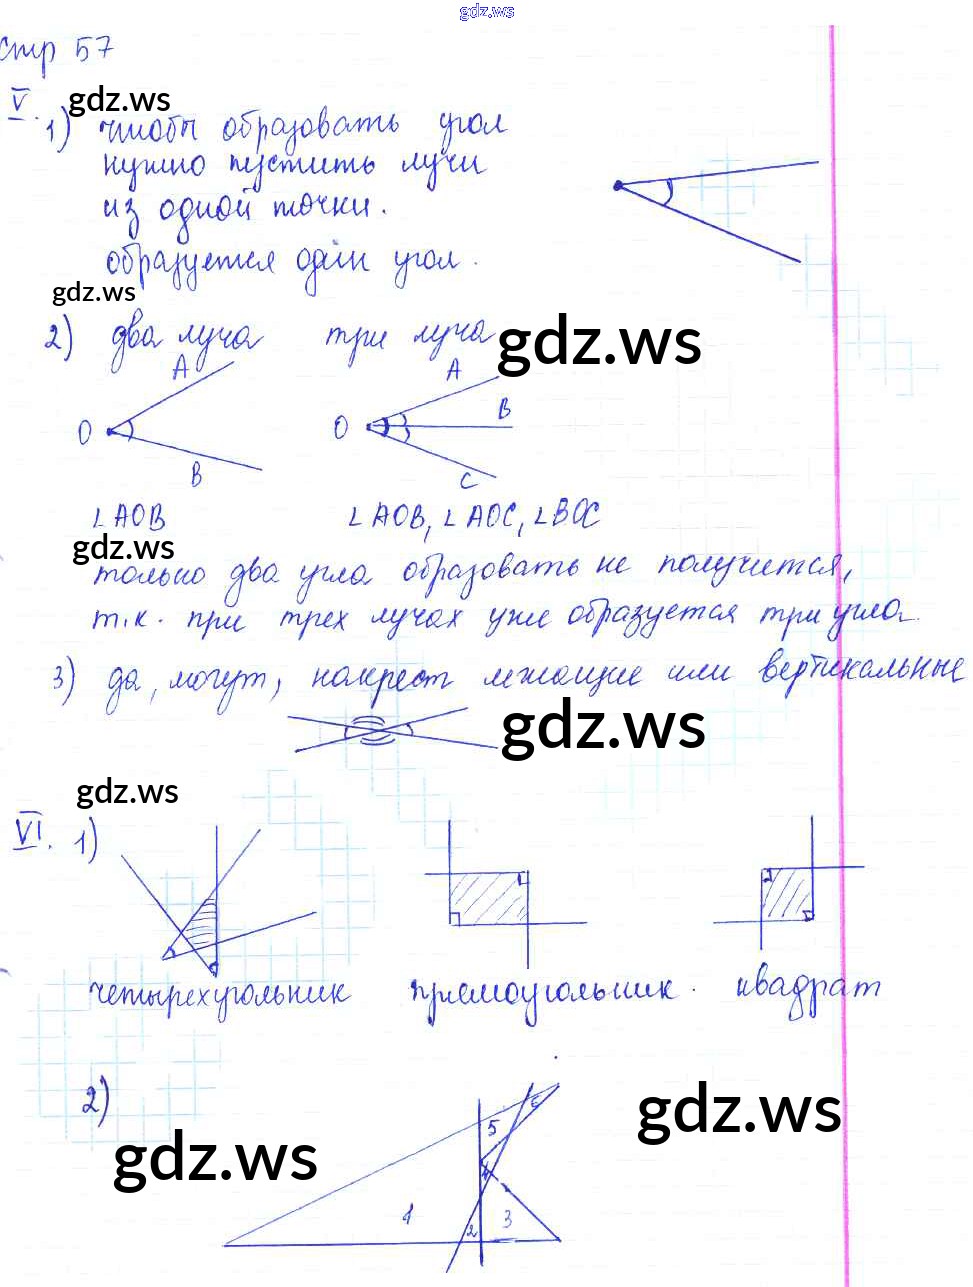 gdz.ws
стр 57
gdz.ws
V. 1) чтобы образовать угол
нужно пустить лучи
из одной точки.
образуется один угол.
gdz.ws
2) два луча три луча
gdz.ws
A A
B
O O
B C
∠AOB ∠AOB, ∠AOC, ∠BOC
gdz.ws
только два угла образовать не получится,
т.к. при трех лучах уже образуется три угла.
3) да, могут, накрест лежащие или вертикальные
gdz.ws
gdz.ws
VI. 1)
четырехугольник прямоугольник. квадрат
2)
gdz.ws
gdz.ws
5
4
1 2 3